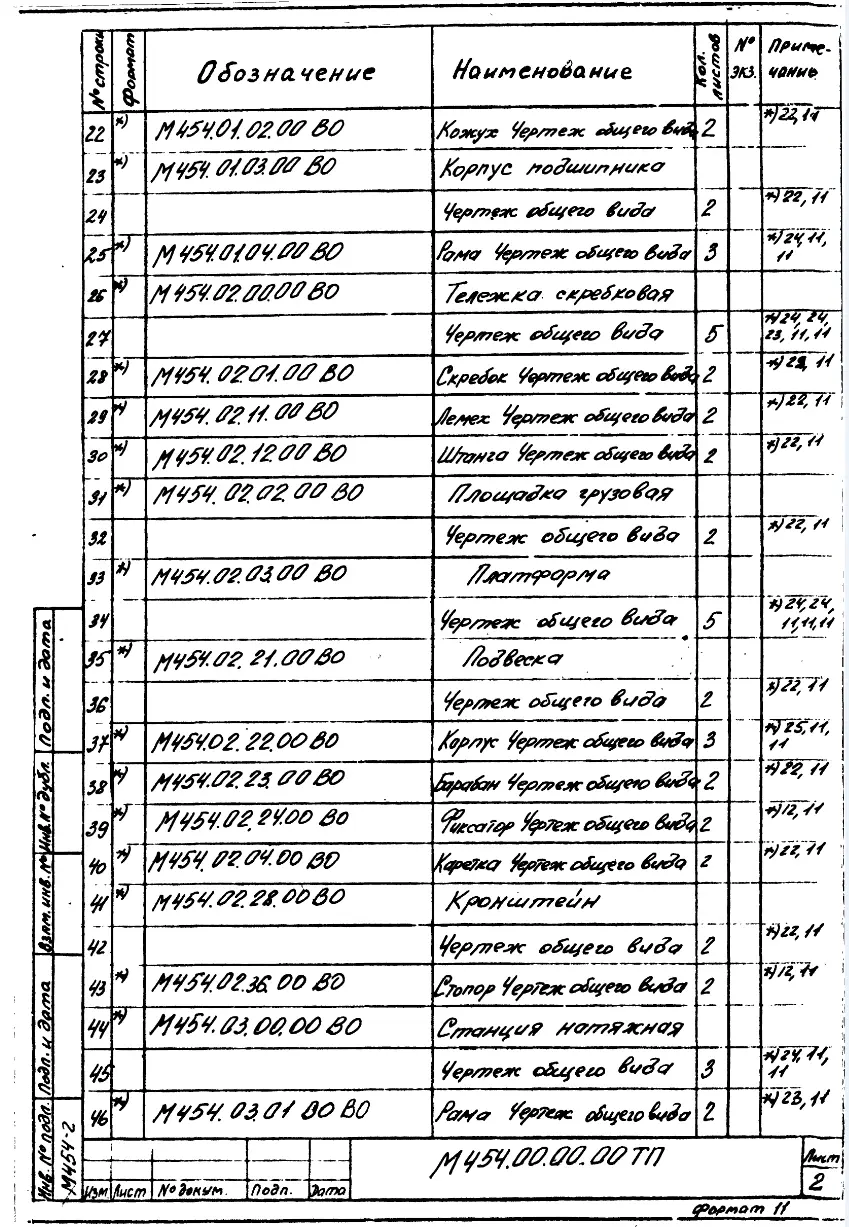 № строки Формат Обозначение Наименование Кол. листов № экз. Примечание
22 *) М454.01.02.00 ВО Кожух Чертеж общего вида 2 *) 22, 11
23 *) М454.01.03.00 ВО Корпус подшипника
24 Чертеж общего вида 2 *) 22, 11
25 *) М454.01.04.00 ВО Рама Чертеж общего вида 3 *) 24, 11,
11
26 *) М454.02.00.00 ВО Тележка скребковая
27 Чертеж общего вида 5 *) 24, 24,
23, 11, 11
28 *) М454.02.01.00 ВО Скребок Чертеж общего вида 2 *) 23, 11
29 *) М454.02.11.00 ВО Лемех Чертеж общего вида 2 *) 22, 11
30 *) М454.02.12.00 ВО Штанга Чертеж общего вида 2 *) 22, 11
31 *) М454.02.02.00 ВО Площадка грузовая
32 Чертеж общего вида 2 *) 22, 11
33 *) М454.02.03.00 ВО Платформа
34 Чертеж общего вида 5 *) 24, 24,
11, 11, 11
35 *) М454.02.21.00 ВО Подвеска
36 Чертеж общего вида 2 *) 22, 11
37 *) М454.02.22.00 ВО Корпус Чертеж общего вида 3 *) 25, 11,
11
38 *) М454.02.23.00 ВО Барабан Чертеж общего вида 2 *) 22, 11
39 *) М454.02.24.00 ВО Фиксатор Чертеж общего вида 2 *) 12, 11
40 *) М454.02.04.00 ВО Каретка Чертеж общего вида 2 *) 22, 11
41 *) М454.02.28.00 ВО Кронштейн
42 Чертеж общего вида 2 *) 22, 11
43 *) М454.02.36.00 ВО Стопор Чертеж общего вида 2 *) 12, 11
44 *) М454.03.00.00 ВО Станция натяжная
45 Чертеж общего вида 3 *) 24, 11,
11
46 *) М454.03.01 ВО ВО Рама Чертеж общего вида 2 *) 23, 11
Изм Лист № докум. Подп. Дата
М454.00.00.00 ТП
Лист
2
Формат 11
Подп. и дата
Инв. № дубл.
Взам. инв. №
Подп. и дата
Инв. № подл.
М454-2